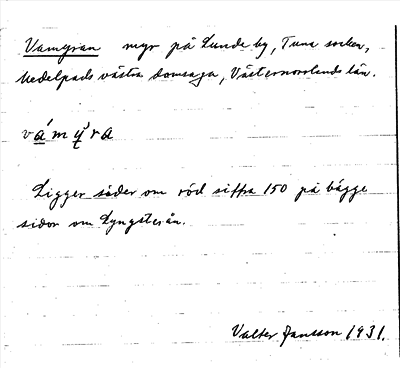 Vamyran myr på Lunde by, Tuna socken,
Medelpads västra domsaga, Västernorrlands län.
vá̱mỳ̱ra
Ligger söder om röd siffra 150 på bägge
sidor om Lyngsterån.
Valter Jansson 1931.